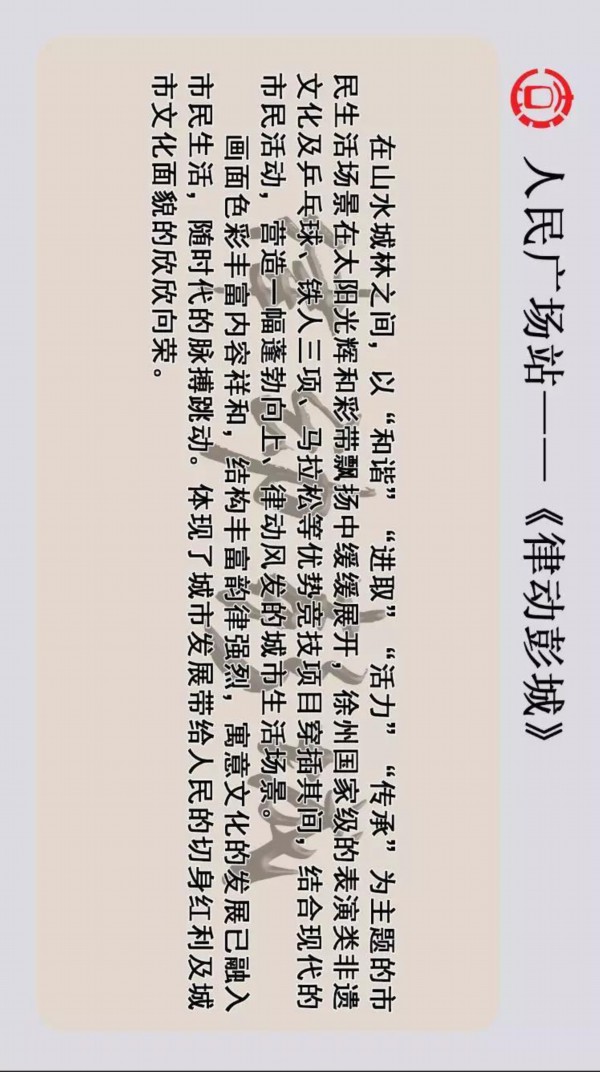 人民广场站——《律动彭城》
在山水城林之间，以“和谐”“进取”“活力”“传承”为主题的市
民生活场景在太阳光辉和彩带飘扬中缓缓展开，徐州国家级的表演类非遗
文化及乒乓球、铁人三项、马拉松等优势竞技项目穿插其间，结合现代的
市民活动，营造一幅蓬勃向上、律动风发的城市生活场景。
画面色彩丰富内容祥和，结构丰富韵律强烈，寓意文化的发展已融入
市民生活，随时代的脉搏跳动。体现了城市发展带给人民的切身红利及城
市文化面貌的欣欣向荣。